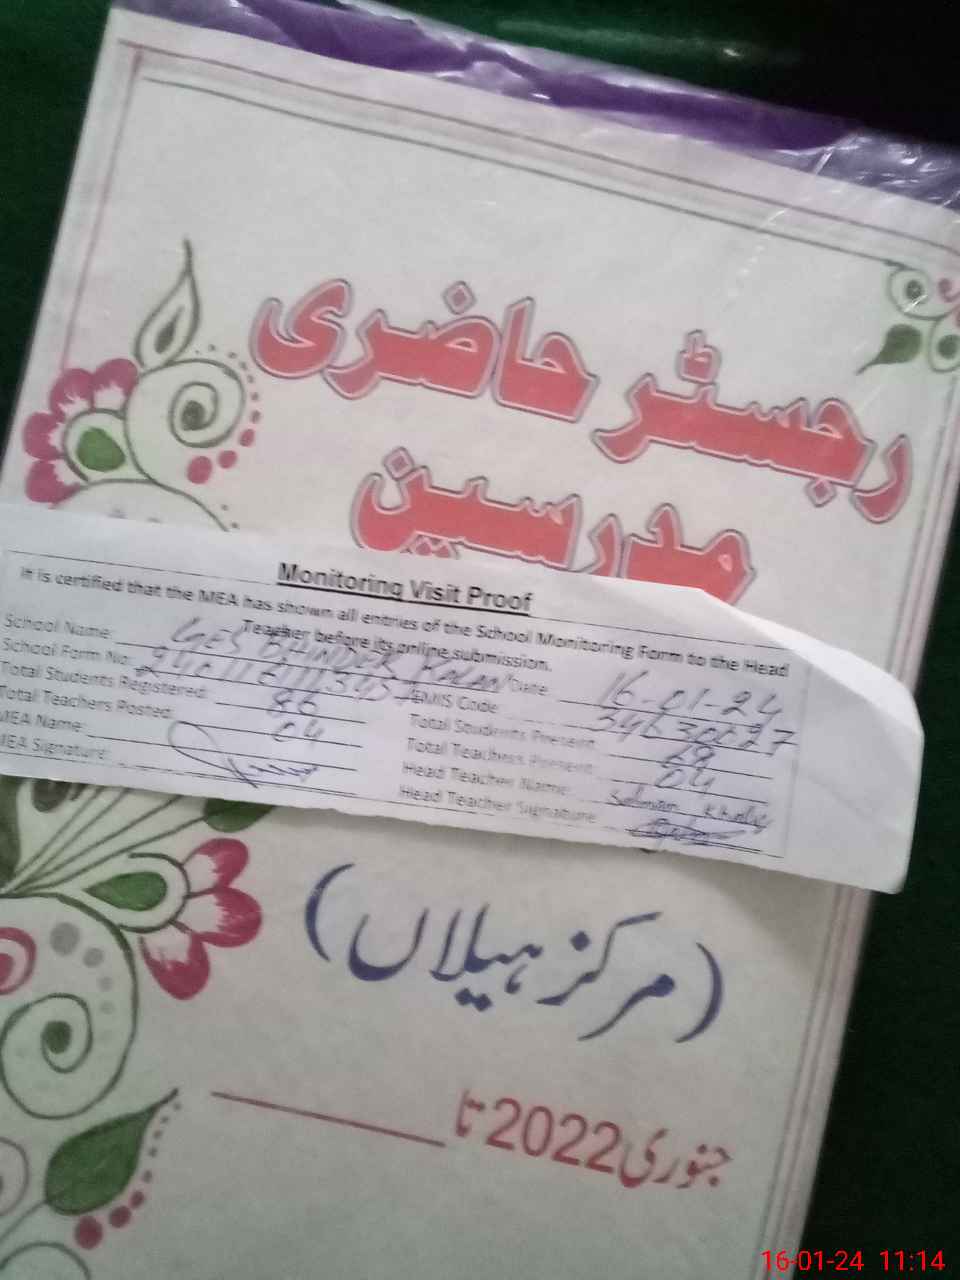 رجسٹر حاضری
مدرسین
Monitoring Visit Proof
It is certified that the MEA has shown all entries of the School Monitoring Form to the Head
Teacher before its online submission.
School Name: GES BHINDER KALAN Date: 16-01-24
School Form No: EMIS Code:
Total Students Registered: 86 Total Students Present:
Total Teachers Posted: 04 Total Teachers Present: 04
MEA Name: Head Teacher Name: Salman
MEA Signature: Head Teacher Signature:
(مرکز ہیلاں)
جنوری 2022 تا
16-01-24 11:14